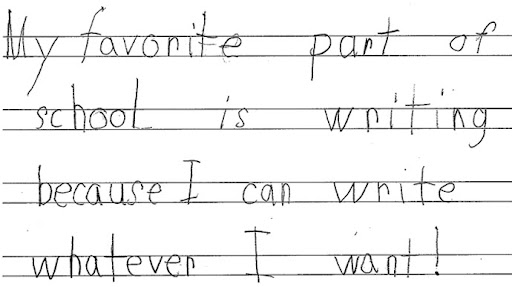 My favorite part of
school is writing
because I can write
whatever I want!